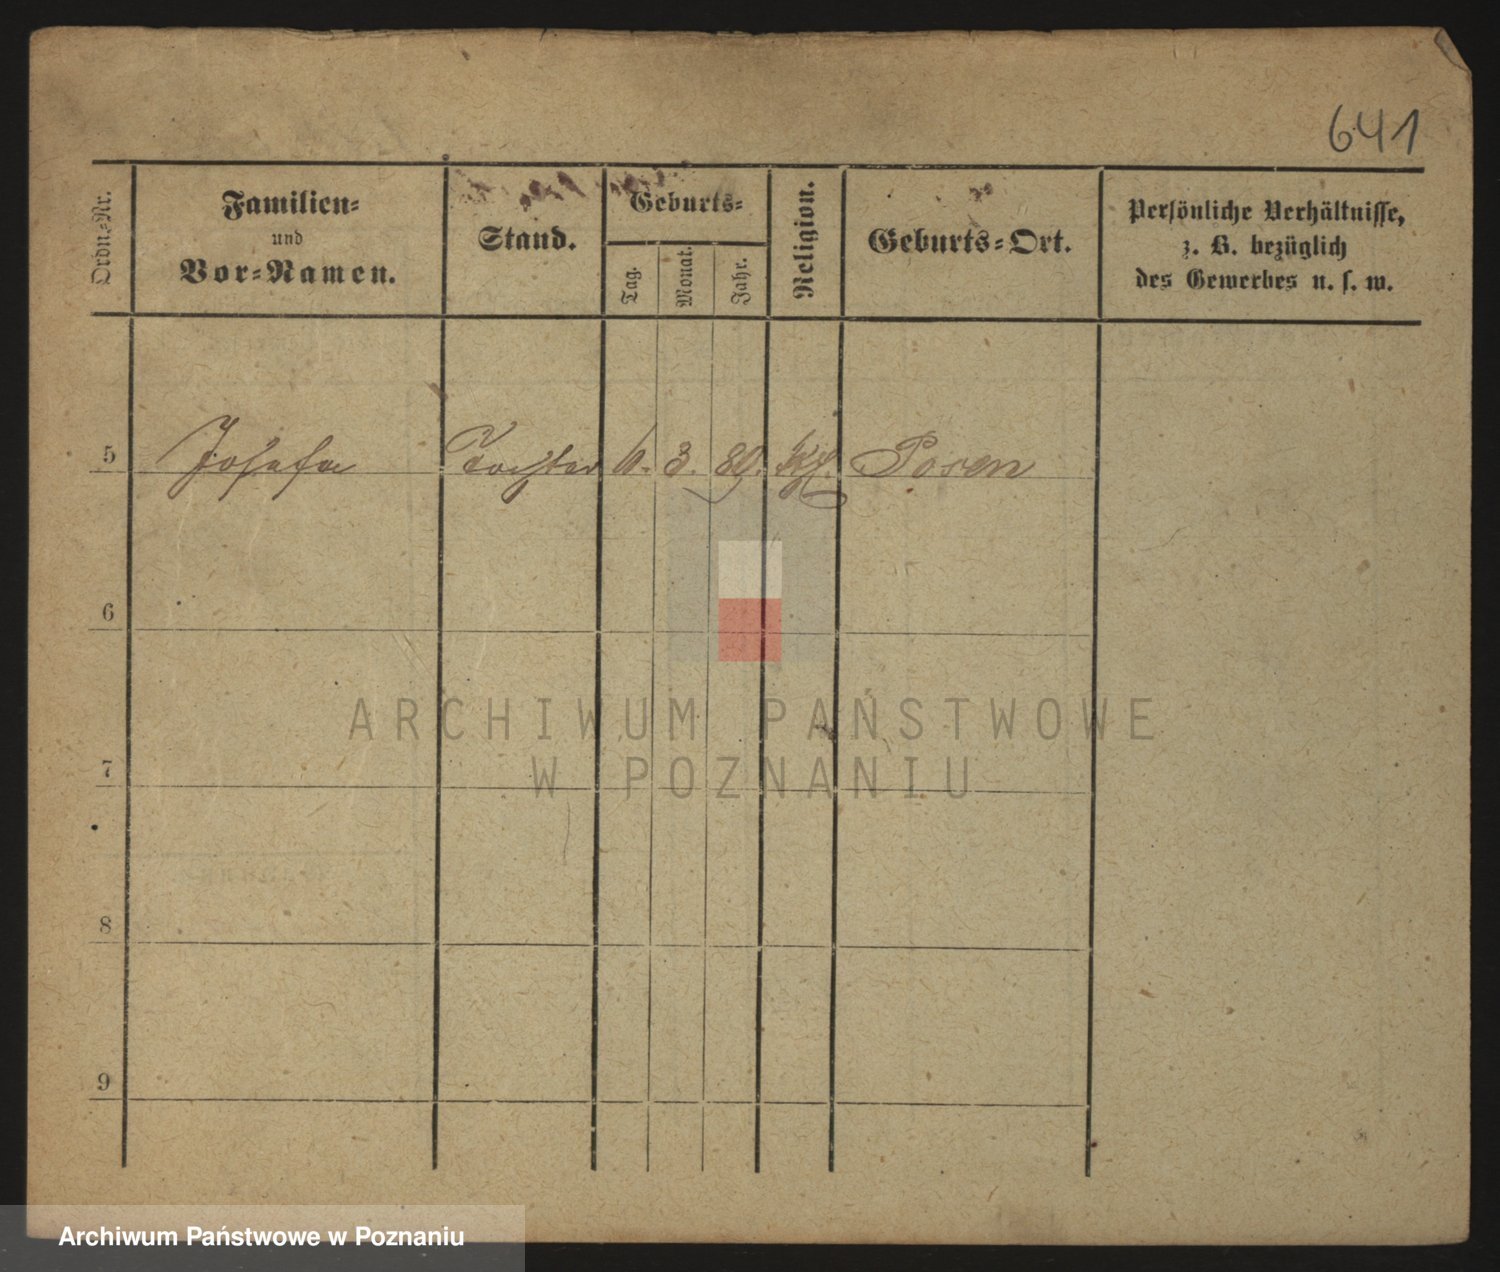 641
Ordn.-Nr.
Familien-
und
Vor-Namen.
Stand.
Geburts-
Tag.
Monat.
Jahr.
Religion.
Geburts-Ort.
Persönliche Verhältnisse,
z. B. bezüglich
des Gewerbes u. s. w.
5 Josefa Tochter 6. 3. 80. kth. Posen
6
7
8
9
ARCHIWUM PAŃSTWOWE
W POZNANIU
Archiwum Państwowe w Poznaniu